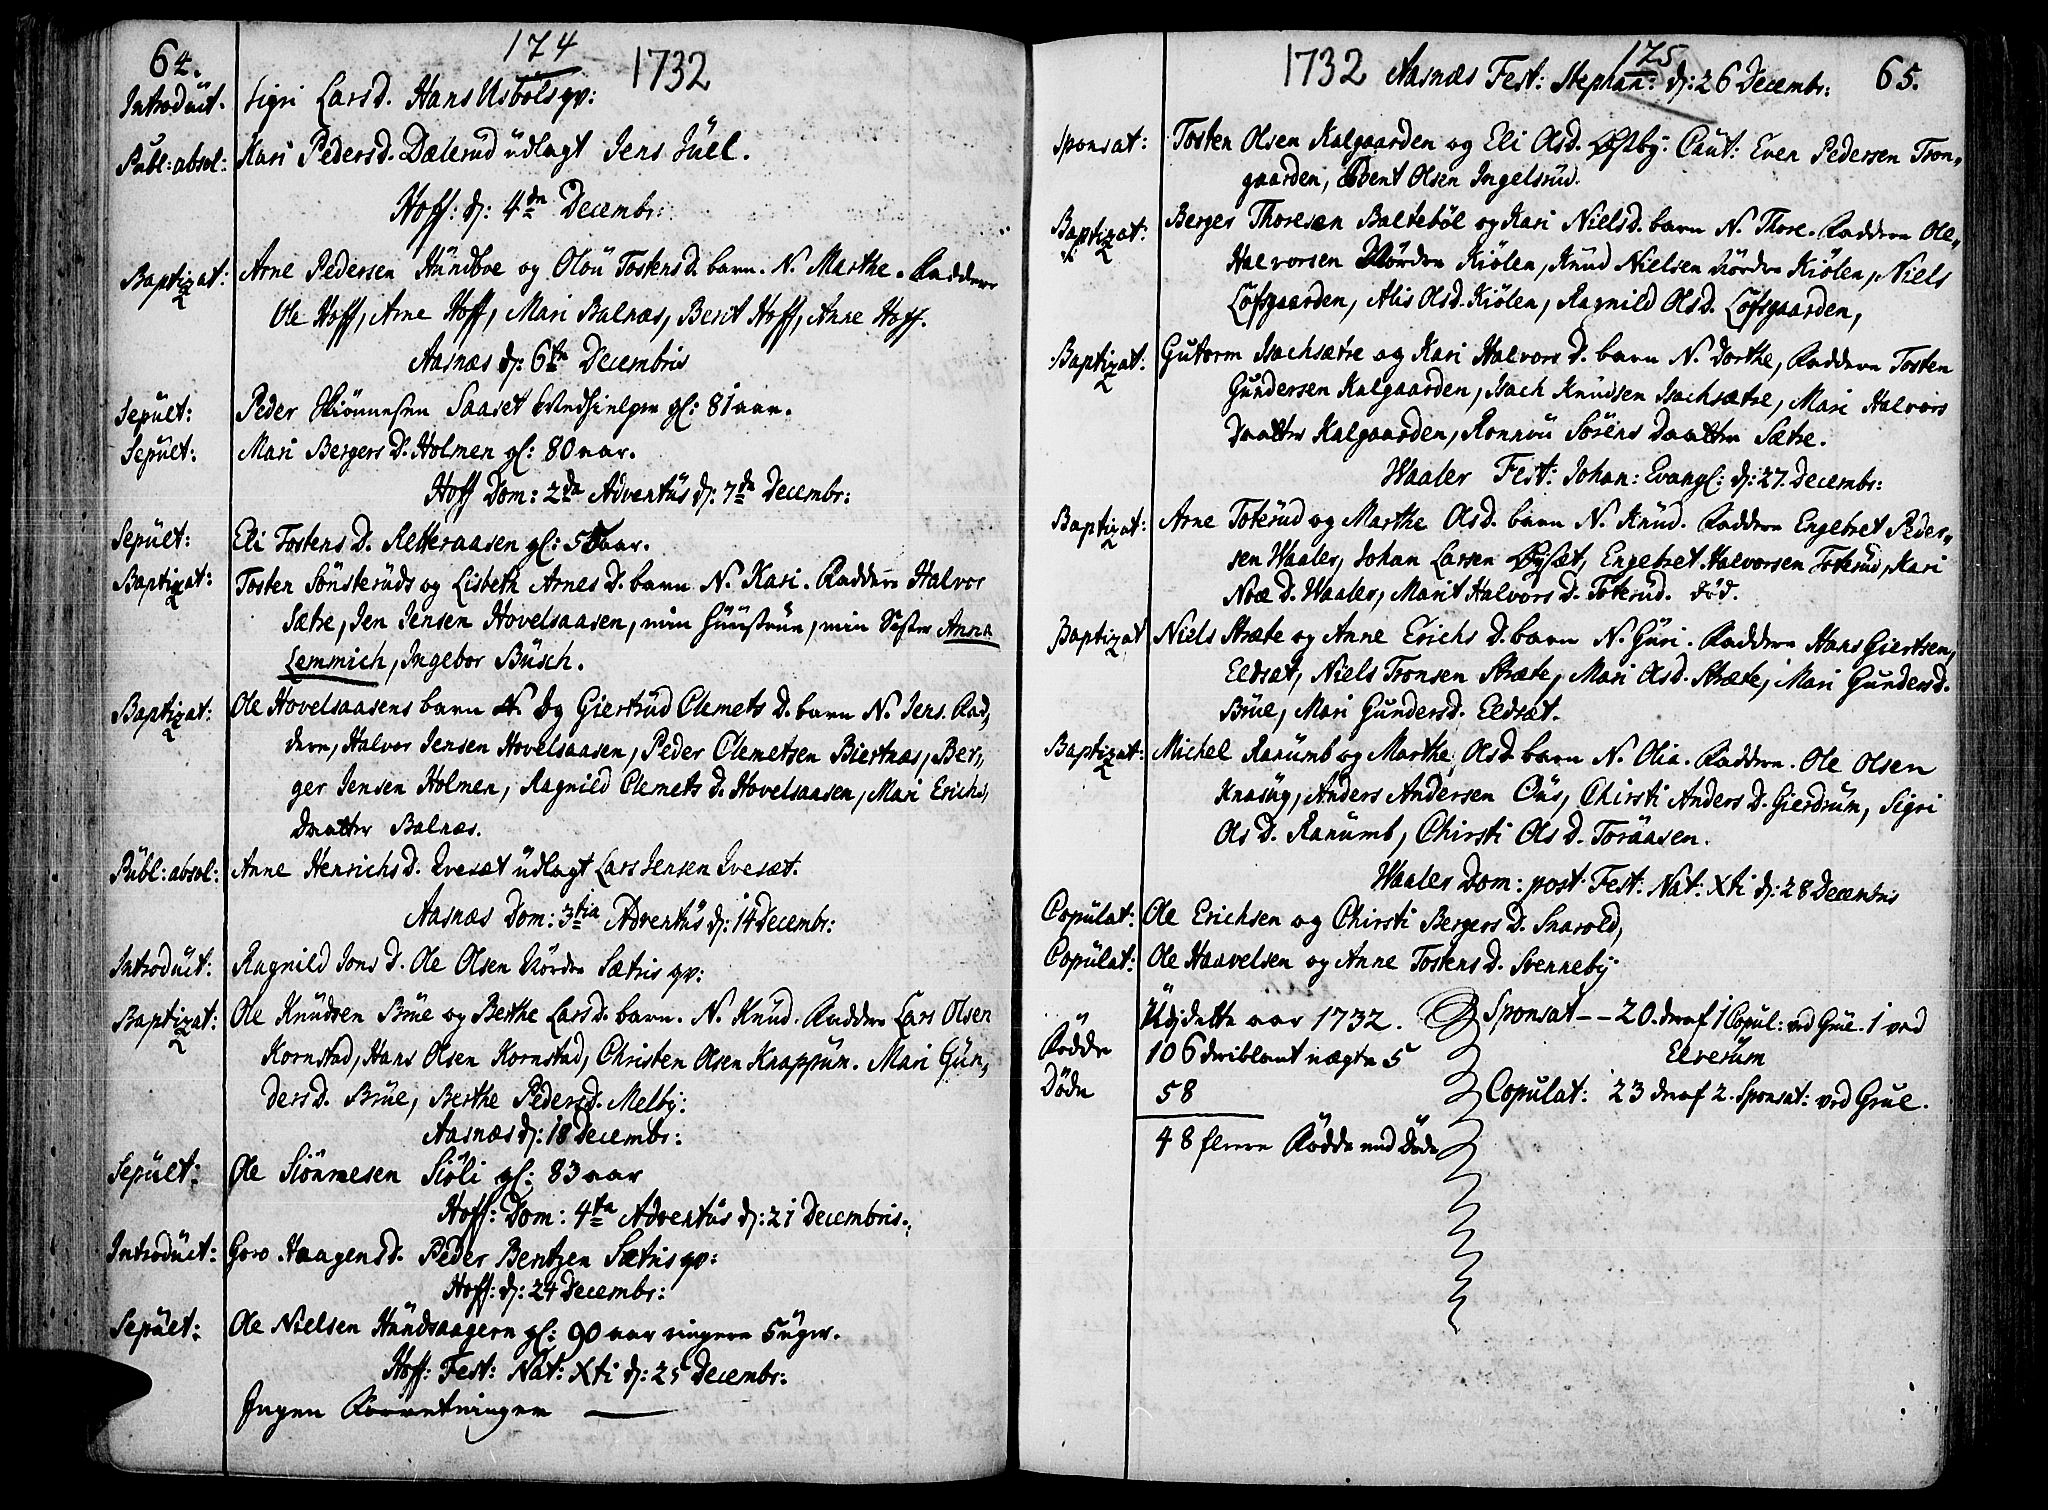 64.
174
1732
Introduct. Sigri Larsd. Hans Usbøls qv:
Publ: absol: Kari Pedersd. Dælerud üdlagt Jens Jüel.
Hoff: d: 4de Decembr:
Baptizat: Arne Pedersen Hündboe og Oloü TostensD. barn. N. Marthe. Faddere
Ole Hoff, Arne Hoff, Mari Balnæs, Berit Hoff, Anne Hoff.
Aasnæs d: 6te Decembris
Sepült: Peder Saaset gl: 81 aar.
Sepült: Mari Bergers D. Holmen gl: 80 aar.
Hoff Dom: 2da Adventüs d: 7de Decembr:
Sepült: Eli Tostens D. Retteraasen gl: aar.
Baptizat: Tosten Sönsterüds og Lisbeth Arnes D. barn N. Kari. Faddere Halvor
Sætre, Jen Jensen Hovelsaasen, min Hüüstrüe, min Søster Anna
Lemmich, Ingebor Büsch.
Baptizat: Ole Hovelsaasens barn N. Og Giertrüd Clemets D. barn N. Jens. Fad,
dere, Halvor Jensen Hovelsaasen, Peder Clemetsen Biertnæs, Ber,
ger Jensen Holmen, Ragnild Clemets D. Hovelsaasen, Mari Erichs,
Daatter Balnæs.
Publ: absol: Anne Henrichs D. Qvesæt üdlagt Lars Jensen Qvesæt.
Aasnæs Dom: 3tia Adventüs d: 14 Decembr:
Introdüct: Ragnild Jons D. Ole Olsen Nordre Sætris qv:
Baptizat: Ole Knüdsen Brüe og Berthe Lars D. barn. N. Knüd. Faddere Lars Olsen
Kornstad, Hans Olsen Kornstad, Christen Olsen Knappüm. Mari Gün,
ders D. Brüe, Berthe Peders D. Melbÿ:
Aasnæs d: 18 Decembr:
Sepült: Ole Siönnesen Siöli gl: 83 aar
Hoff: Dom: 4ta Adventüs d: 21 Decembris.
Introdüct: Goro Haagens D. Peder Bentzen Sætris qv:
Hoff: d: 24 Decembr:
Sepült: Ole Nielsen Hündsaageren gl: 90 aar ringere 5 üger.
Hoff: Fest: Nat: Xti d: 25 Decembr:
Ingen Forretninger
1732
175
Aasnæs Fest: Stephan: d: 26 Decembr:
65.
Sponsat: Tosten Olsen Kalgaarden og Eli Ols D. Østbÿ: Caut: Even Pedersen Tron,
gaarden, Bent Olsen Ingelsrüd.
Baptizat: Berger Thoresen Baltebøl og Kari Niels D. barn N. Thore. Faddere Ole
Halvorsen Nørdre Kiölen, Knüd Nielsen Nordre Kiölen, Niels
Löfsgaarden, Alis Ols D. Kiölen, Ragnild Ols D. Löfsgaarden,
Baptizat: Gutorm Isachsætre og Kari Halvors D. barn N. Dorthe, Faddere Tosten
Gundersen Kalgaarden, Isach Knüdsen Isachsætre, Mari Halvors
Daatter Kalgaarden, Ronnoü Sörens Daatter Sætre.
Waaler Fest: Johan: Evangl: d: 27. Decembr:
Baptizat: Arne Toterüd og Marthe Ols D. barn N. Knüd. Faddere Engebret Peder,
sen Waaler, Johan Larsen Øysæt, Engebret Halvorsen Toterüd, Kari
Noæ D. Waaler, Marit Halvors D. Toterud. død.
Baptizat Niels Stræte og Anne Erichs D. barn N. Güri. Faddere Hans Giertsen,
Eldsæt, Niels Tronsen Stræte, Mari Ols D. Stræte, Mari Gunders D.
Brüe, Mari Gunders D. Eldsæt.
Baptizat: Michel Ranümb og Marthe Ols D. barn N. Olia. Faddere. Ole Olsen
Knasüg, Anders Andersen Cüs, Chirsti Anders D. Gierdrüm, Sigri
Ols D. Ranümb, Chirsti Ols D. Toråasen.
Waaler Dom: post Fest: Nat: Xti d: 28 Decembris
Copülat: Ole Erichsen og Chirsti Bergers D. Snarold,
Copülat: Ole Haavelsen og Anne Tostens D. Svennebÿ
Udj dette aar 1732. Sponsat - - 20. deraf 1 Copül: ved Grüe. 1 ved
Elverüm
Födde 106 deriblant uægte 5
Döde 58 Copulat: 23 deraf 2. Sponsat: ved Grüe.
48 flere Födde end Döde